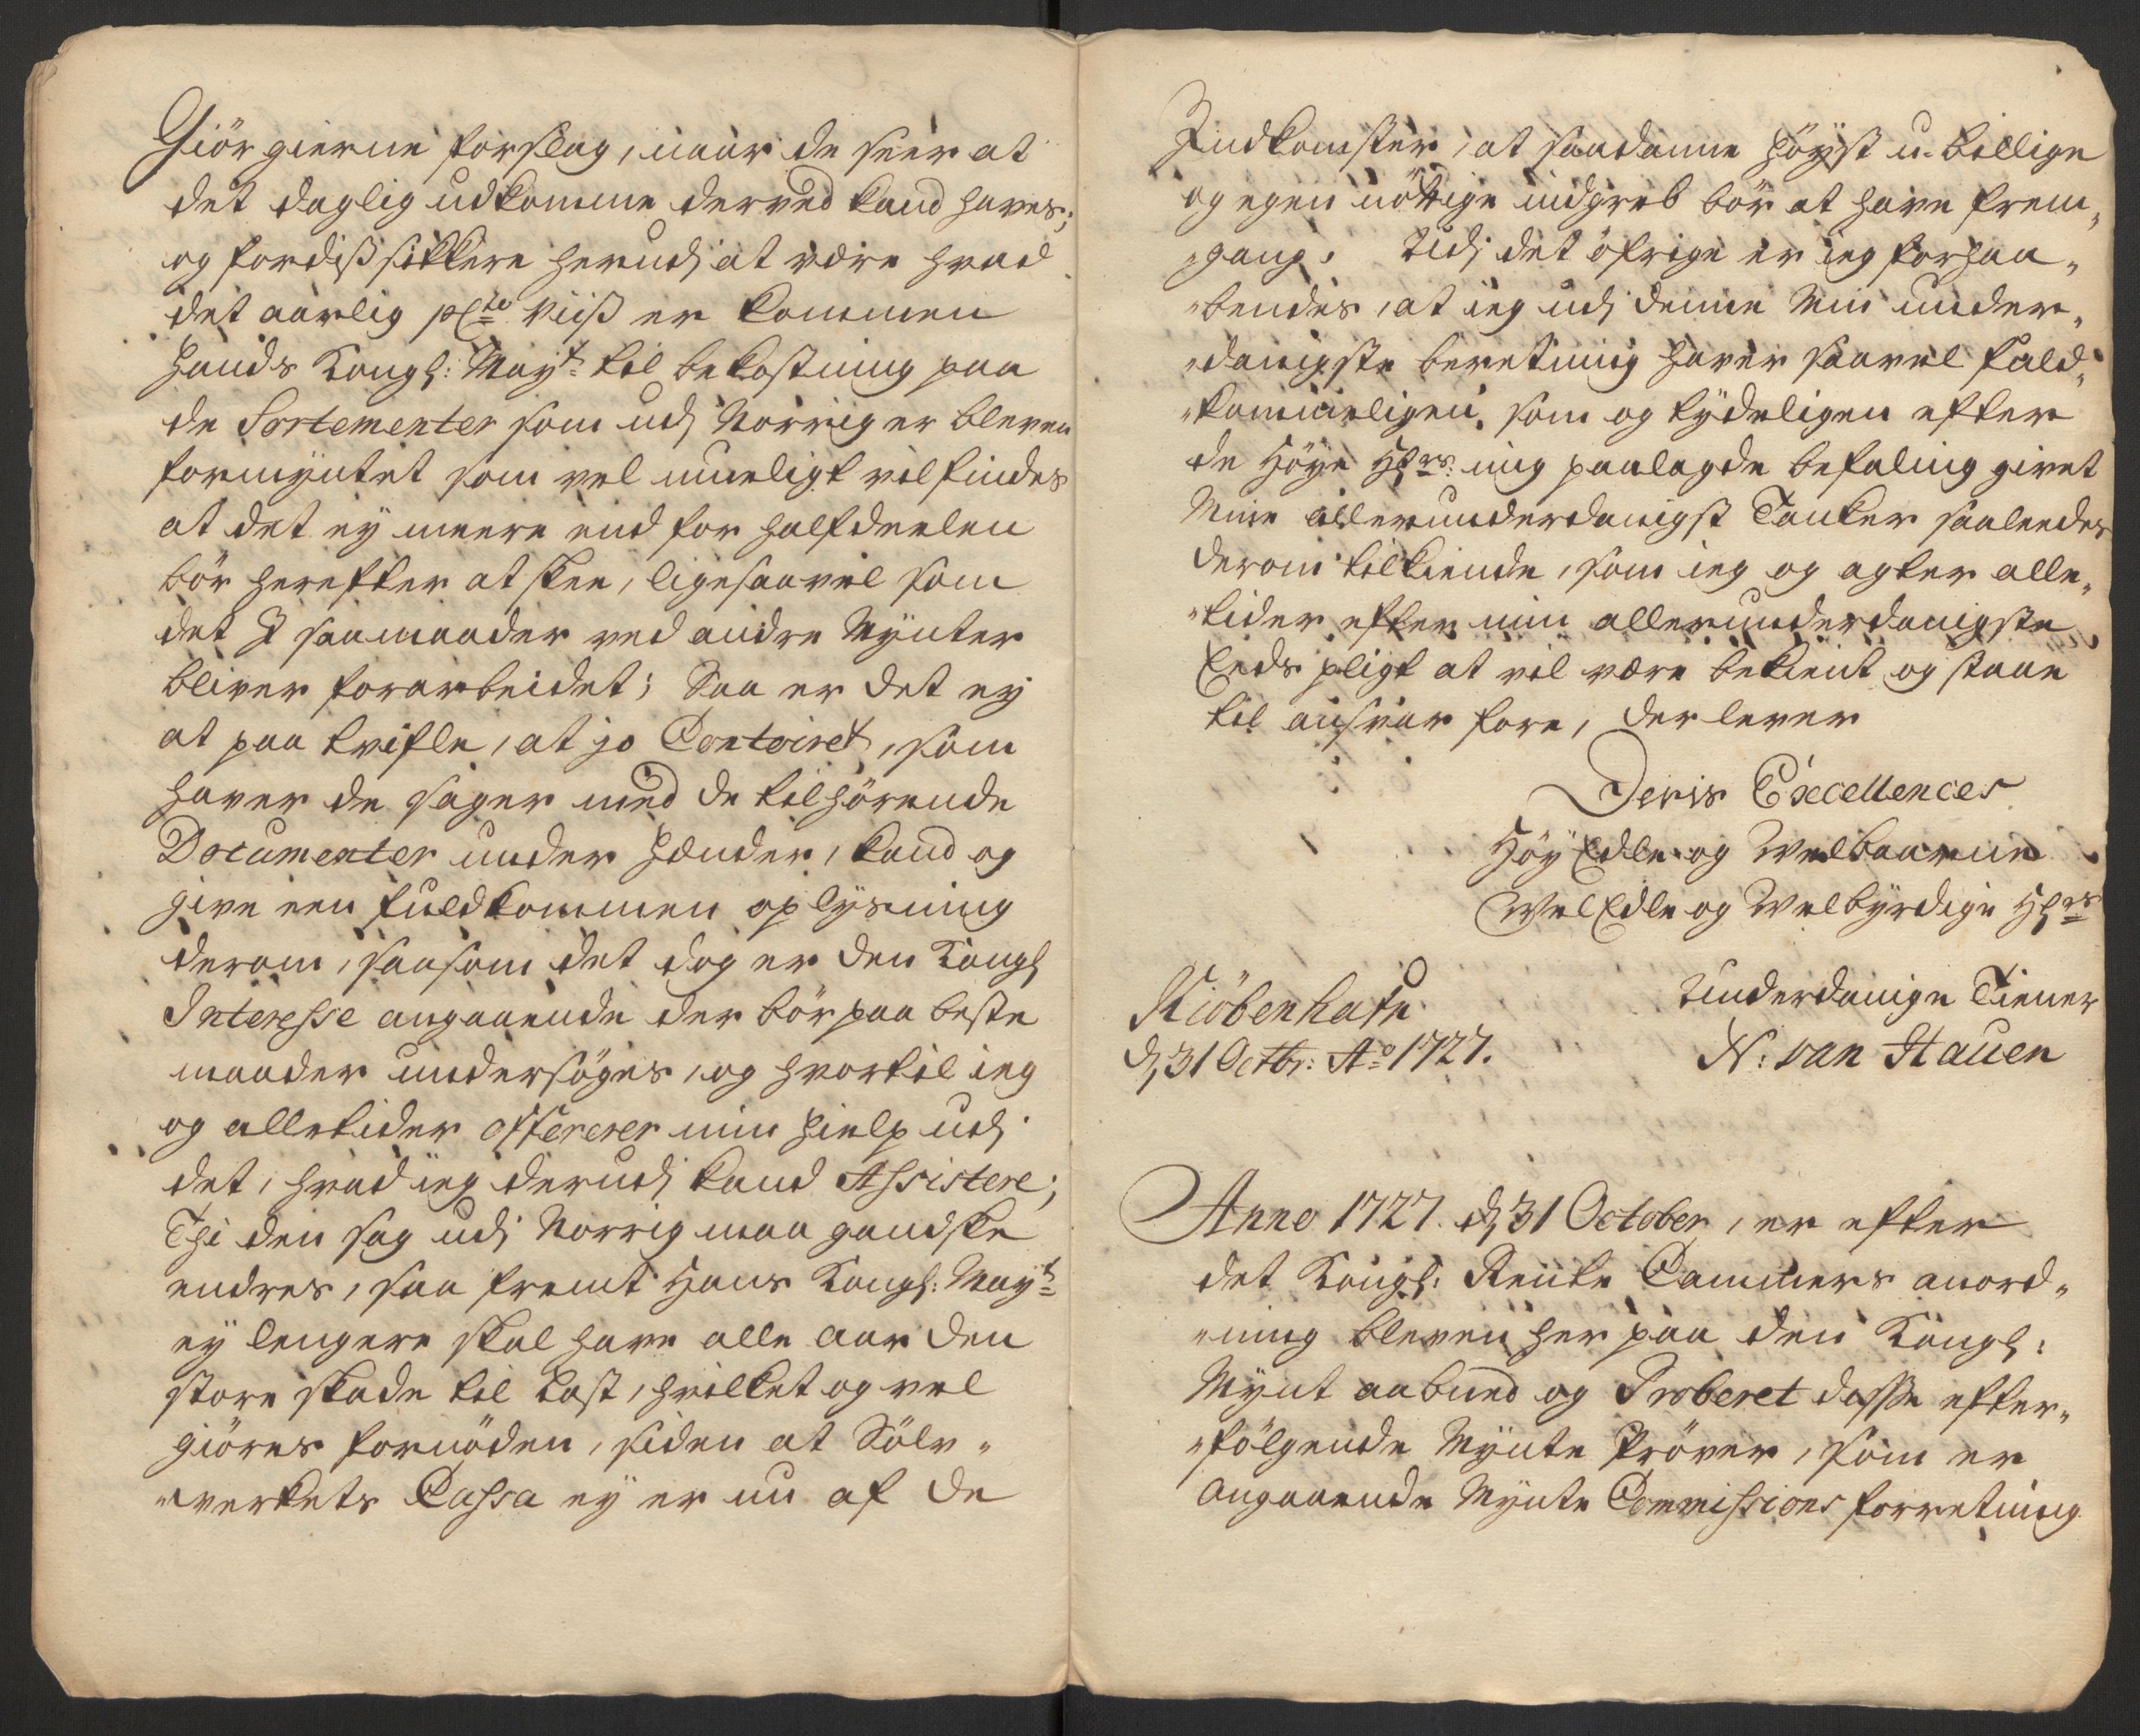 Giör gierne forslag, naar de seer at
det daglig udkomme derved kand haves;
og fordiß sikkere herudj at være hvad
det aarlig viiß er kommen
Hands Kongl: Mayt: til bekostning paa
de Sortementer som udj Norrig er bleven
formyntet som vel mueligt vil findes
at det ey meere end for halfdeelen
bör herefter at skee, ligesaavel som
det J saa maader ved andre Mÿnter
bliver forarbeidet; Saa er det ey
at paa tvifle, at jo Contoiret, som
haver de sager med de tilhörende
Documenter under Hænder, kand og
give een fuldkommen oplysning
derom, saasom det dog er den Kongl
Interesse angaaende der bör paa beste
maader undersöges, og hvortil ieg
og alletider offererer min hielp udj
det, hvad ieg derudj kand Assistere;
Thi den sag udj Norrig maa gandske
endres, saa fremt Hans Kongl: Mayt:
ey lengere skal have alle aar den
store skade til Last, hvilket og vel
giöres fornöden, siden at Sölv-
-verkets Cassa ey er nu af de
Indkomster, at saadanne höyst u-billige
og egen nöttige indgreb bör at have frem-
-gang. Udj det öfrige er ieg forhaa-
-bendes, at ieg udj denne Min under-
-danigste beretning haver saavel fuld-
-kommeligen, som og tydeligen efter
de Höye Hrs: mig paalagde befaling givet
Mine allerunderdanigst Tanker saaleedes
derom tilkiende, som ieg og agter alle-
-tider efter min allerunderdanigste
Eeds pligt at vil være bekient og staae
til ansvar fore, der lever
Deris Excellences
Höy Edle og Welbaarne
Wel Edle og Welbyrdige Hrs
Kiöbenhafn
dj 31 Octbr: Ao 1727.
Underdanige Tiener
N: van Hauen
Anno 1727. dj 31 October, er efter
det Kongl: Rente Cammers anord-
-ning bleven her paa den Kongl:
Mynt aabned og Proberet disse efter-
-fölgende Mynte Pröver, som er
angaaende Mynte Commissions forretning